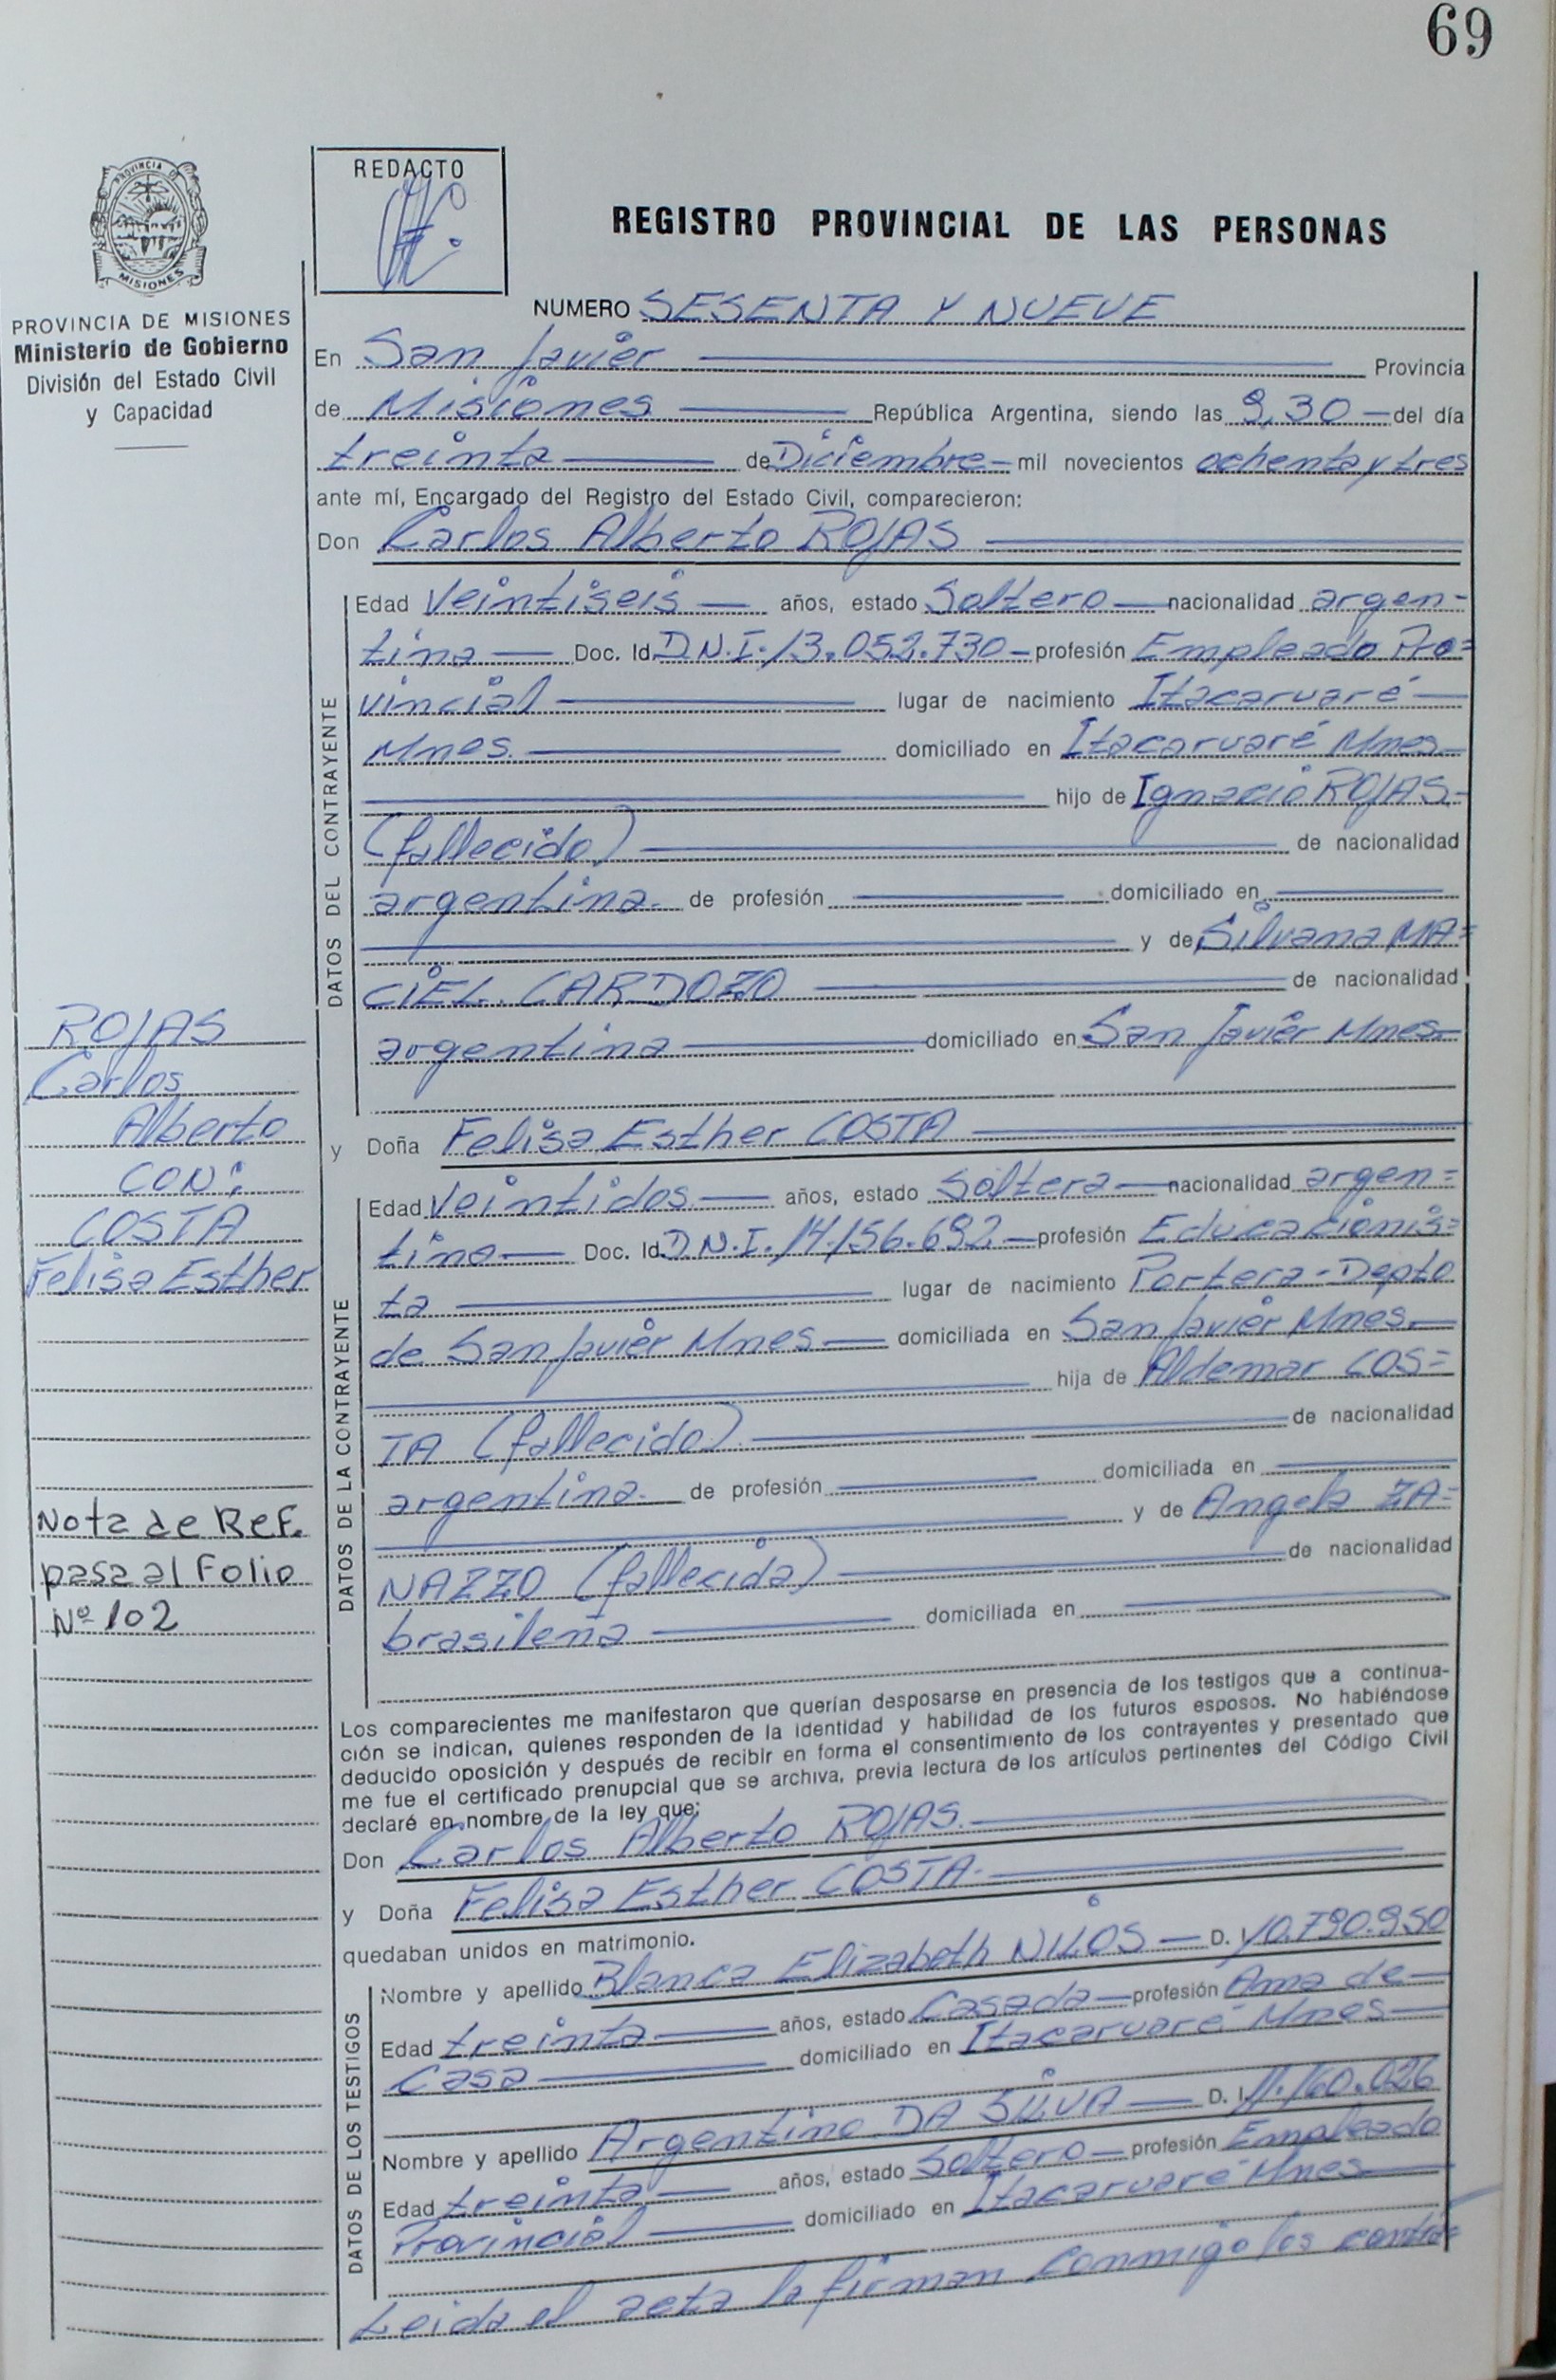 69
PROVINCIA DE
MISIONES
PROVINCIA DE MISIONES
Ministerio de Gobierno
División del Estado Civil
y Capacidad
REDACTO
REGISTRO PROVINCIAL DE LAS PERSONAS
NUMERO SESENTA Y NUEVE
En San Javier Provincia
de Misiones República Argentina, siendo las 9,30 del día
treinta de Diciembre mil novecientos ochenta y tres
ante mí, Encargado del Registro del Estado Civil, comparecieron:
Don Carlos Alberto ROJAS
DATOS DEL CONTRAYENTE
Edad Veintiseis años, estado Soltero nacionalidad argen-
tina Doc. Id D.N.I. 13.052.730 profesión Empleado Pro=
vincial lugar de nacimiento Itacaruaré
Mnes. domiciliado en Itacaruaré Mnes
hijo de Ignacio ROJAS
(fallecido) de nacionalidad
argentina de profesión domiciliado en
y de Silvana MA=
CIEL CARDOZO de nacionalidad
argentina domiciliado en San Javier Mnes
y Doña Felisa Esther COSTA
DATOS DE LA CONTRAYENTE
Edad Veintidos años, estado Soltera nacionalidad argen=
tina Doc. Id D.N.I. 14.156.692 profesión Educacionis=
ta lugar de nacimiento Portera-Depto
de San Javier Mnes domiciliada en San Javier Mnes
hija de Aldemar COS=
TA (fallecido) de nacionalidad
argentina de profesión domiciliada en
y de Angela ZA=
NAZZO (fallecida) de nacionalidad
brasileña domiciliada en
Los comparecientes me manifestaron que querían desposarse en presencia de los testigos que a continua-
ción se indican, quienes responden de la identidad y habilidad de los futuros esposos. No habiéndose
deducido oposición y después de recibir en forma el consentimiento de los contrayentes y presentado que
me fue el certificado prenupcial que se archiva, previa lectura de los artículos pertinentes del Código Civil
declaré en nombre de la ley que:
Don Carlos Alberto ROJAS
y Doña Felisa Esther COSTA
quedaban unidos en matrimonio.
DATOS DE LOS TESTIGOS
Nombre y apellido Blanca Elizabeth D. I. 10.790.950
Edad treinta años, estado Casada profesión Ama de
Casa domiciliado en Itacaruaré Mnes
Nombre y apellido Argentino DA SILVA D. I. 11.160.026
Edad treinta años, estado Soltero profesión Empleado
Provincial domiciliado en Itacaruaré Mnes
Leida el acta la firman conmigo los contra=
ROJAS
Carlos
Alberto
CON:
COSTA
Felisa Esther
Nota de Ref.
pasa al Folio
Nº 102